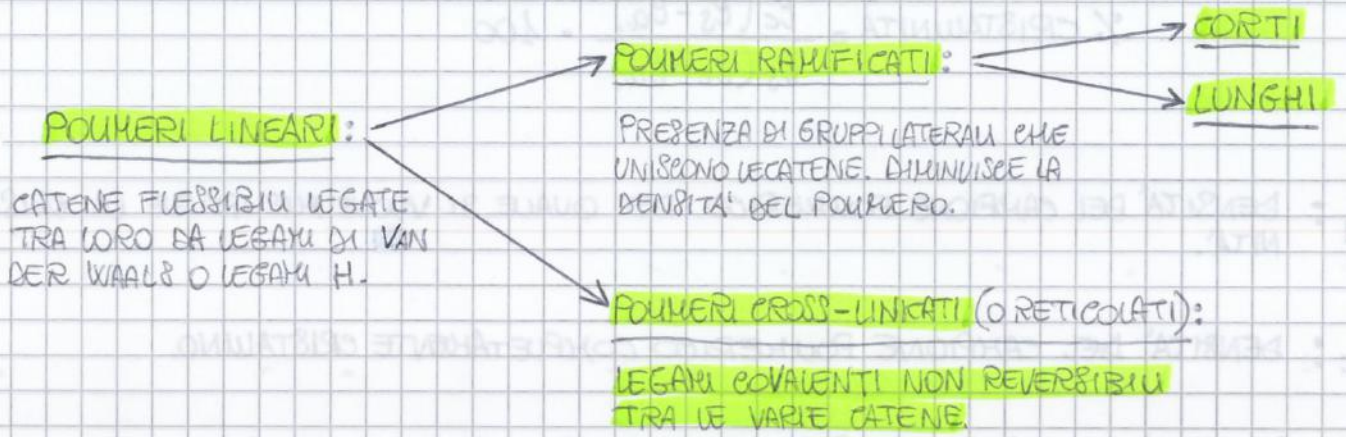 POLIMERI LINEARI:
CATENE FLESSIBILI LEGATE
TRA LORO DA LEGAMI DI VAN
DER WAALS O LEGAMI H.
POLIMERI RAMIFICATI:
PRESENZA DI GRUPPI LATERALI CHE
UNISCONO LE CATENE. DIMINUISCE LA
DENSITA' DEL POLIMERO.
CORTI
LUNGHI
POLIMERI CROSS-LINKATI (O RETICOLATI):
LEGAMI COVALENTI NON REVERSIBILI
TRA LE VARIE CATENE.